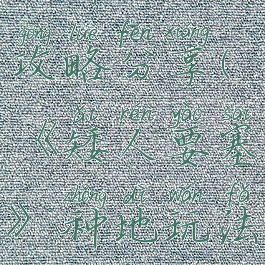 gōng lüè fēn xiǎng
攻略分享(
ǎi rén yào sài
《矮人要塞
zhòng dì wán fǎ
》种地玩法